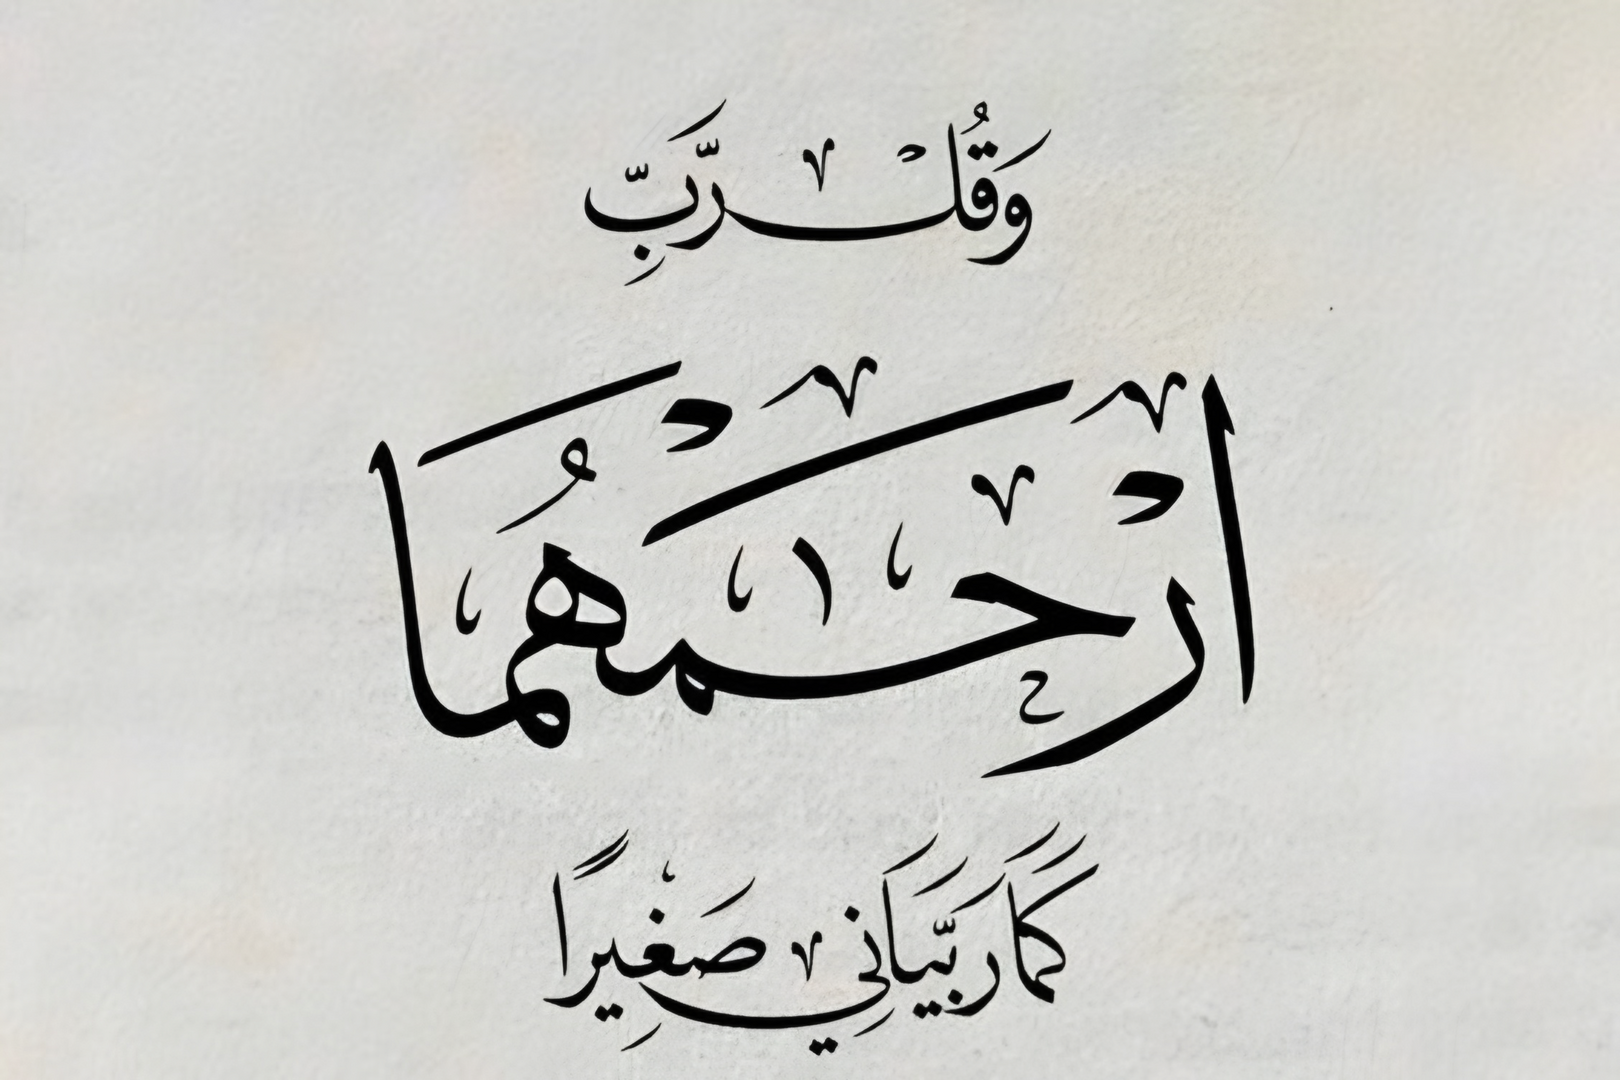 وَقُلْ رَّبِّ
ارْحَمْهُمَا
كَمَا رَبَّيَانِي صَغِيرًا